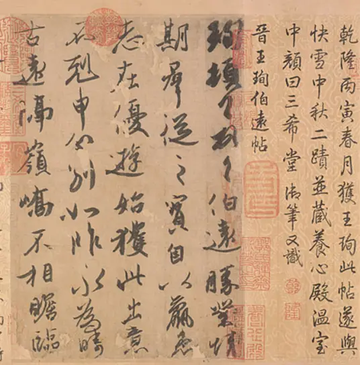 乾隆丙寅春月獲王珣此帖遂與
快雪中秋二蹟並藏養心殿溫室
中顏曰三希堂御筆又識
晉王珣伯遠帖
珣頓首頓首伯遠勝業情
期羣從之寶自以羸患
志在優遊始獲此出意
不剋申分別如昨永為疇
古遠隔嶺嶠不相瞻臨